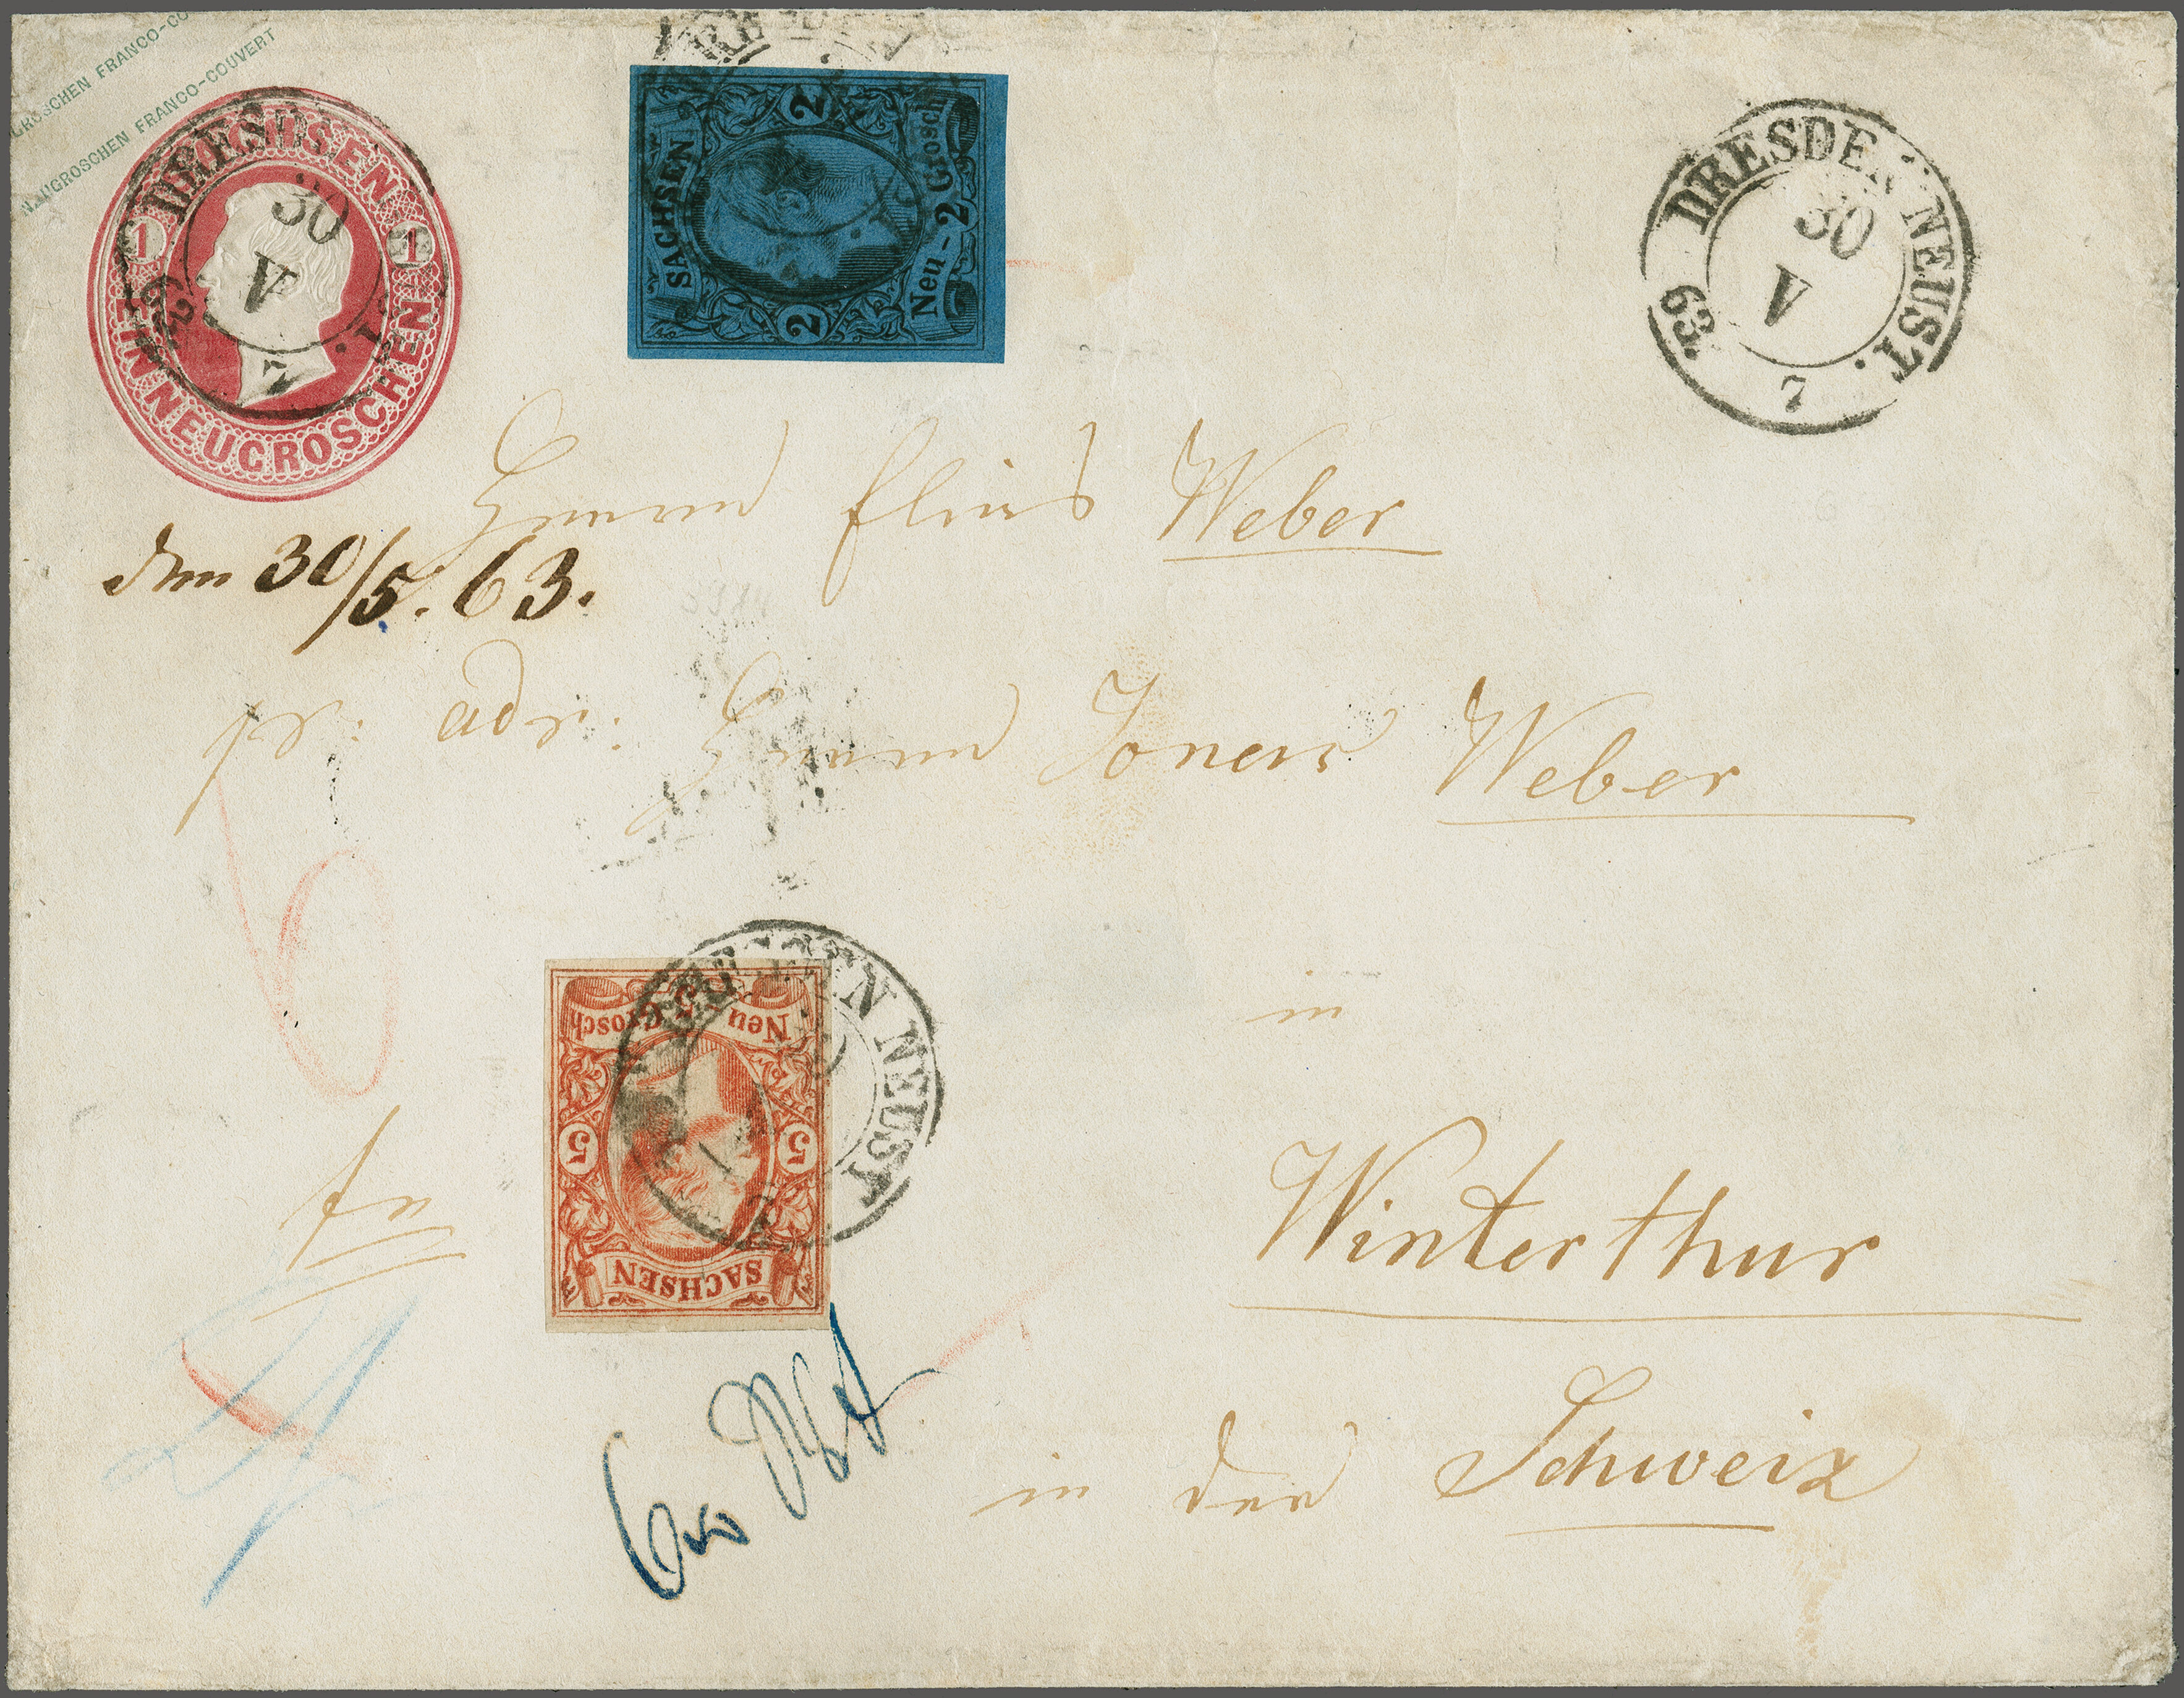 GROSCHEN FRANCO-CO
NEUGROSCHEN FRANCO-COUVERT
SACHSEN
1 1
EIN NEUGROSCHEN
DRESD
30
V
63
7
SACHSEN
2 2
Neu-2 Grosch
DRESDEN NEUST.
30
V
63.
7
Herrn Weber
den 30/5. 63.
pr: adr: Herrn Weber
DRESDEN NEUST
Neu 5 Grosch
5 5
SACHSEN
in
fr
Winterthur
in der Schweiz
6